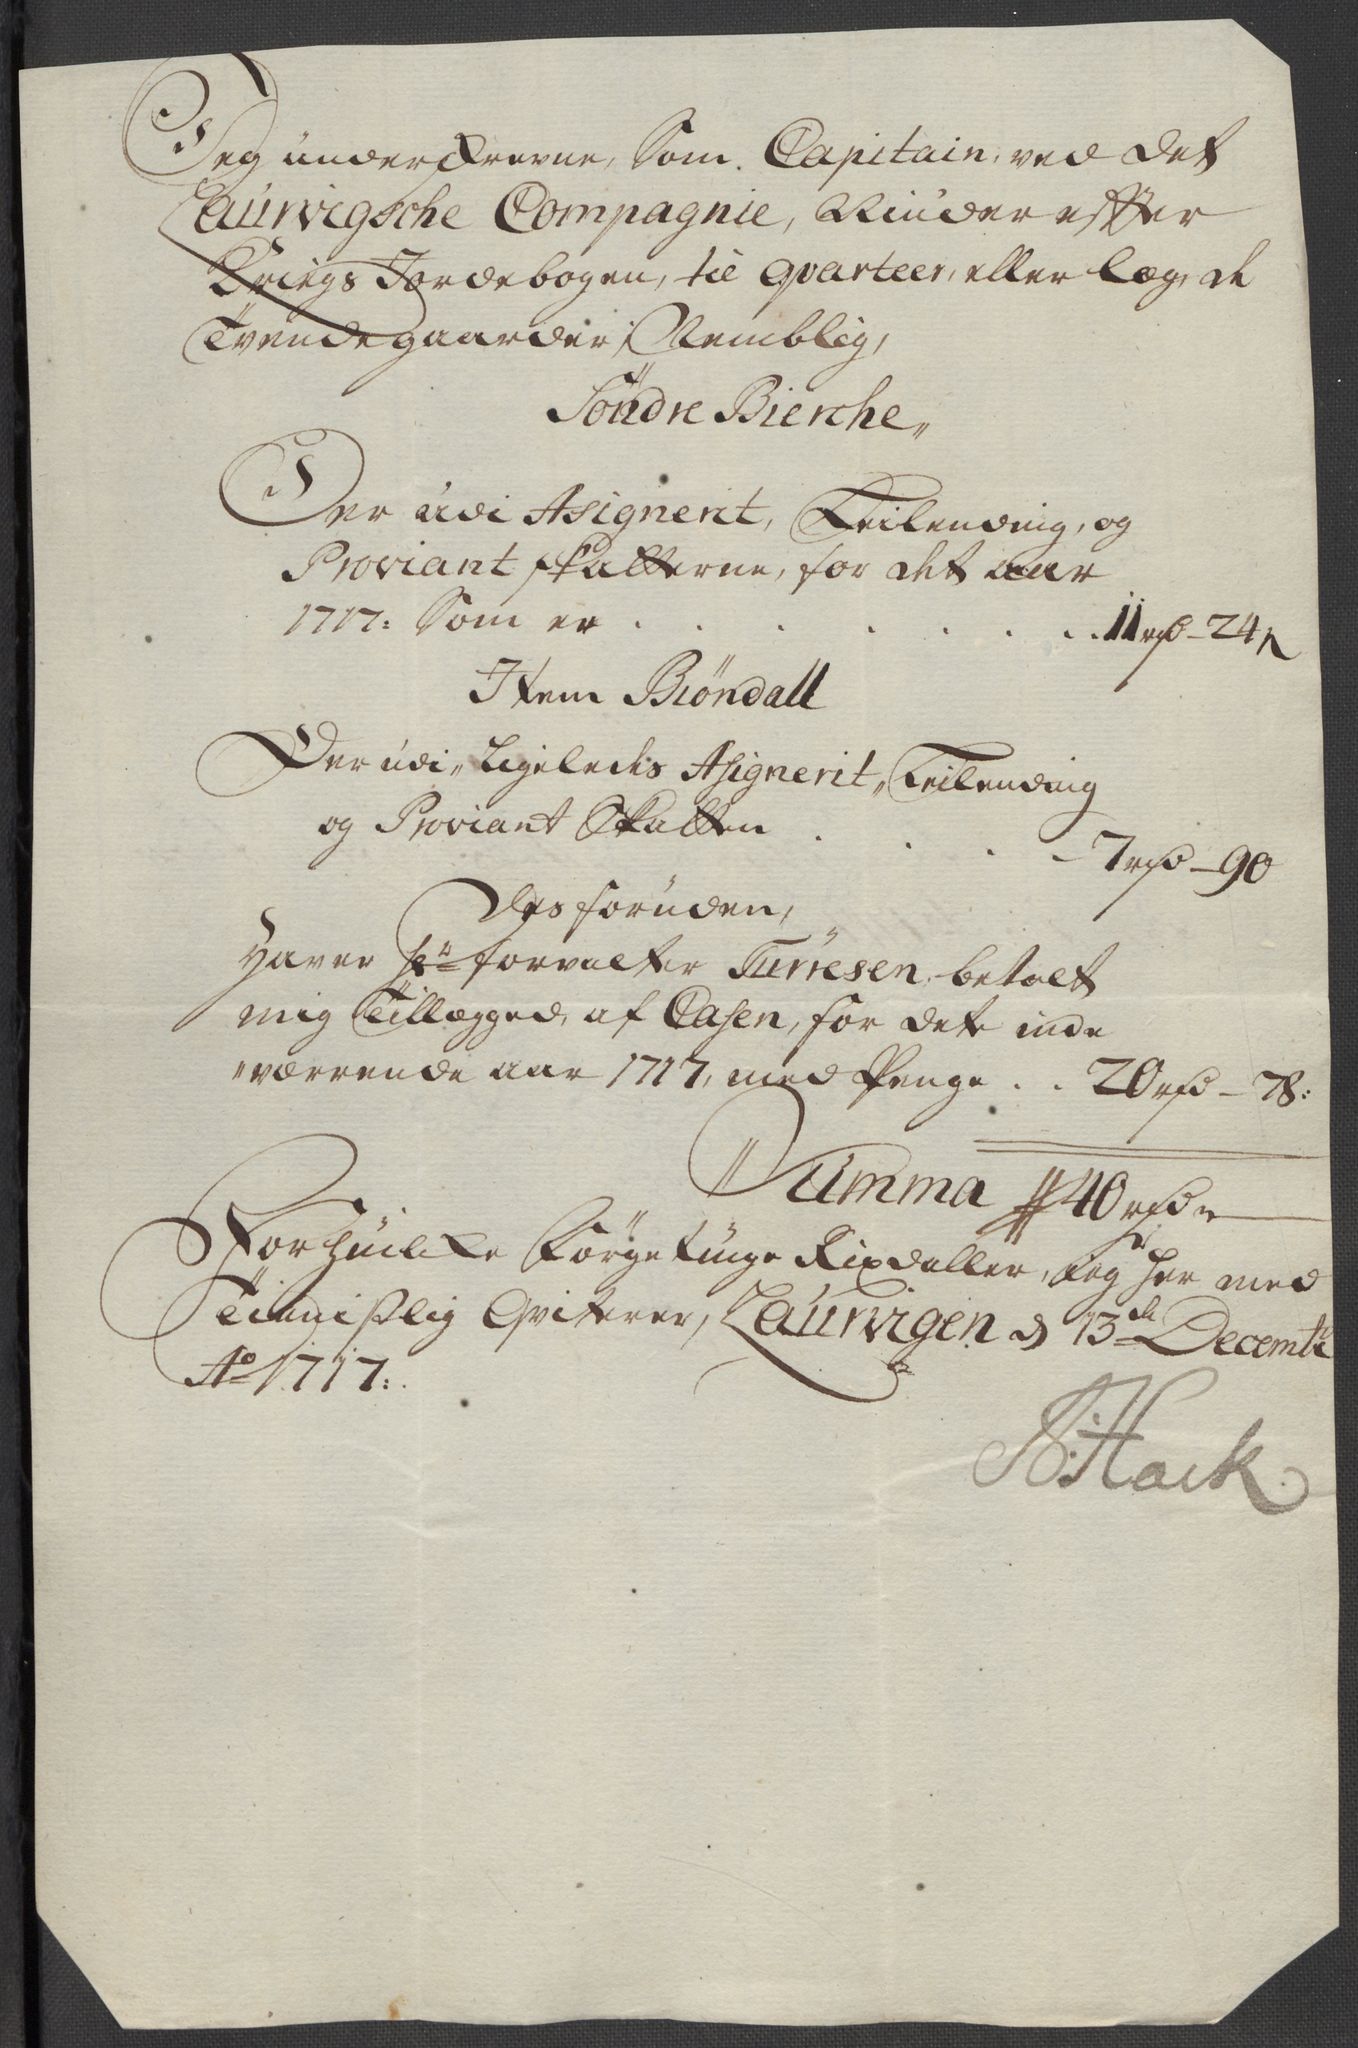 Jeg underskrevne, Som. Capitain, ved det
Laurvigsche Compagnie, Niuder effter
Kriegs Jordebogen, til qvarteer, eller læg, de
Tvende gaarder, Nemblig,
Söndre Bierche„
Der udi Asignerit, Leilending, og
Proviant skatterne, for det aar
1717: Som er . . . . . . . . 11 rdr - 24 s
Item Biöndall
Der udi„ Ligeledes Assignerit„ Leilending
og Proviant Skatten . . . - 7 rdr - 90
Des foruden,
Haver hr forvalter Turresen, betalt
mig Tillægged, af Casen, for dete inde
„værrende aar 1717, med Penge . . 20 rdr - 78:
Summa # 40 rdr
For huilcke Förgetiuge Rixdaller, Jeg her med
Tienistlig Qviterer, Laurvigen d 13de Decembr
Ao 1717:
Hack